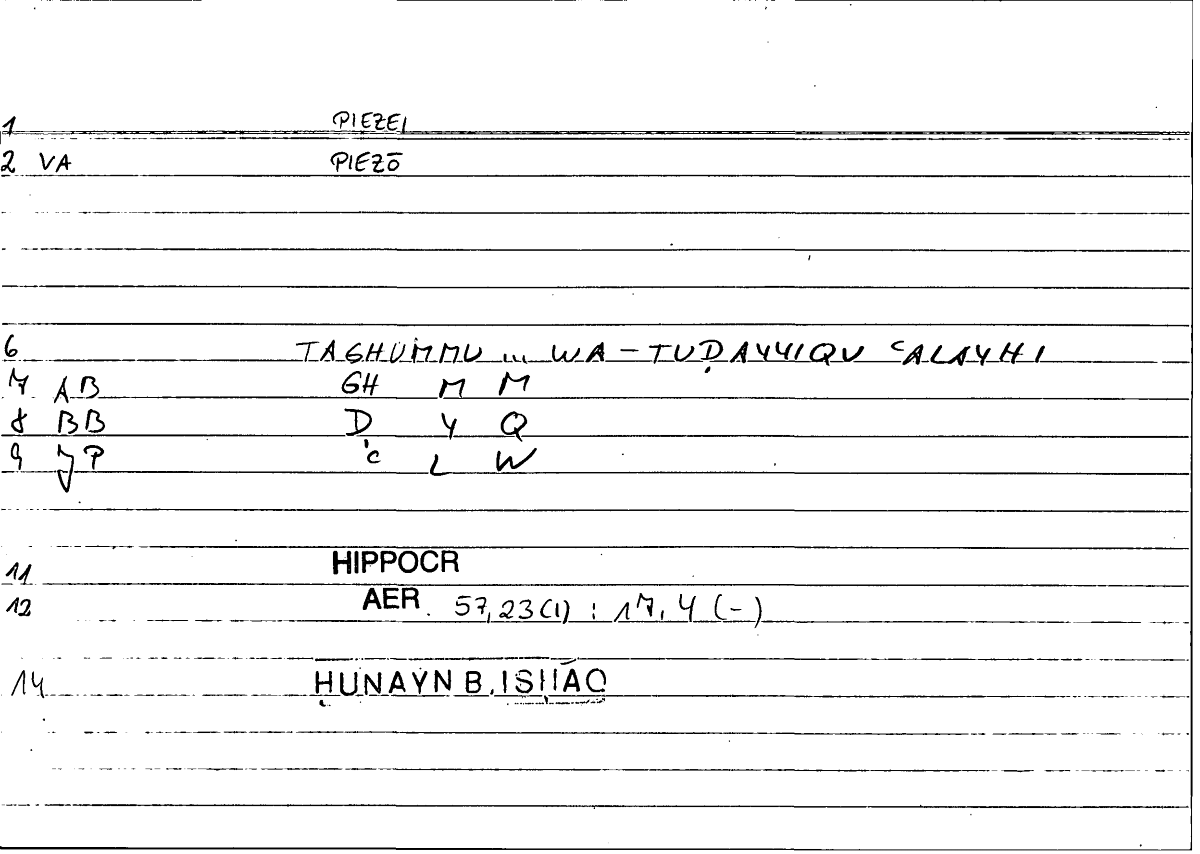 1 PIEZEI
2 VA PIEZŌ
6 TAGHUMMU ... WA-TUḌAYYIQU ʿALAYHI
7 AB GH M M
8 BB Ḍ Y Q
9 JP ʿ L W
11 HIPPOCR
12 AER. 57,23(1) : 17,4 (-)
14 ḤUNAYN B. ISḤĀQ